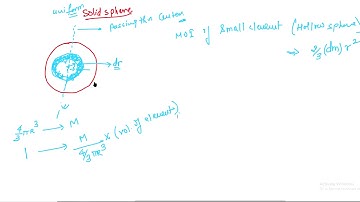 uniform
Solid sphere
Passing thr Center
MOI of small element (Hollow sphere)
⇒ 2/3 (dm) r²
dr
4/3 πR³ → M
1 → M / 4/3 πR³ × (vol. of element)